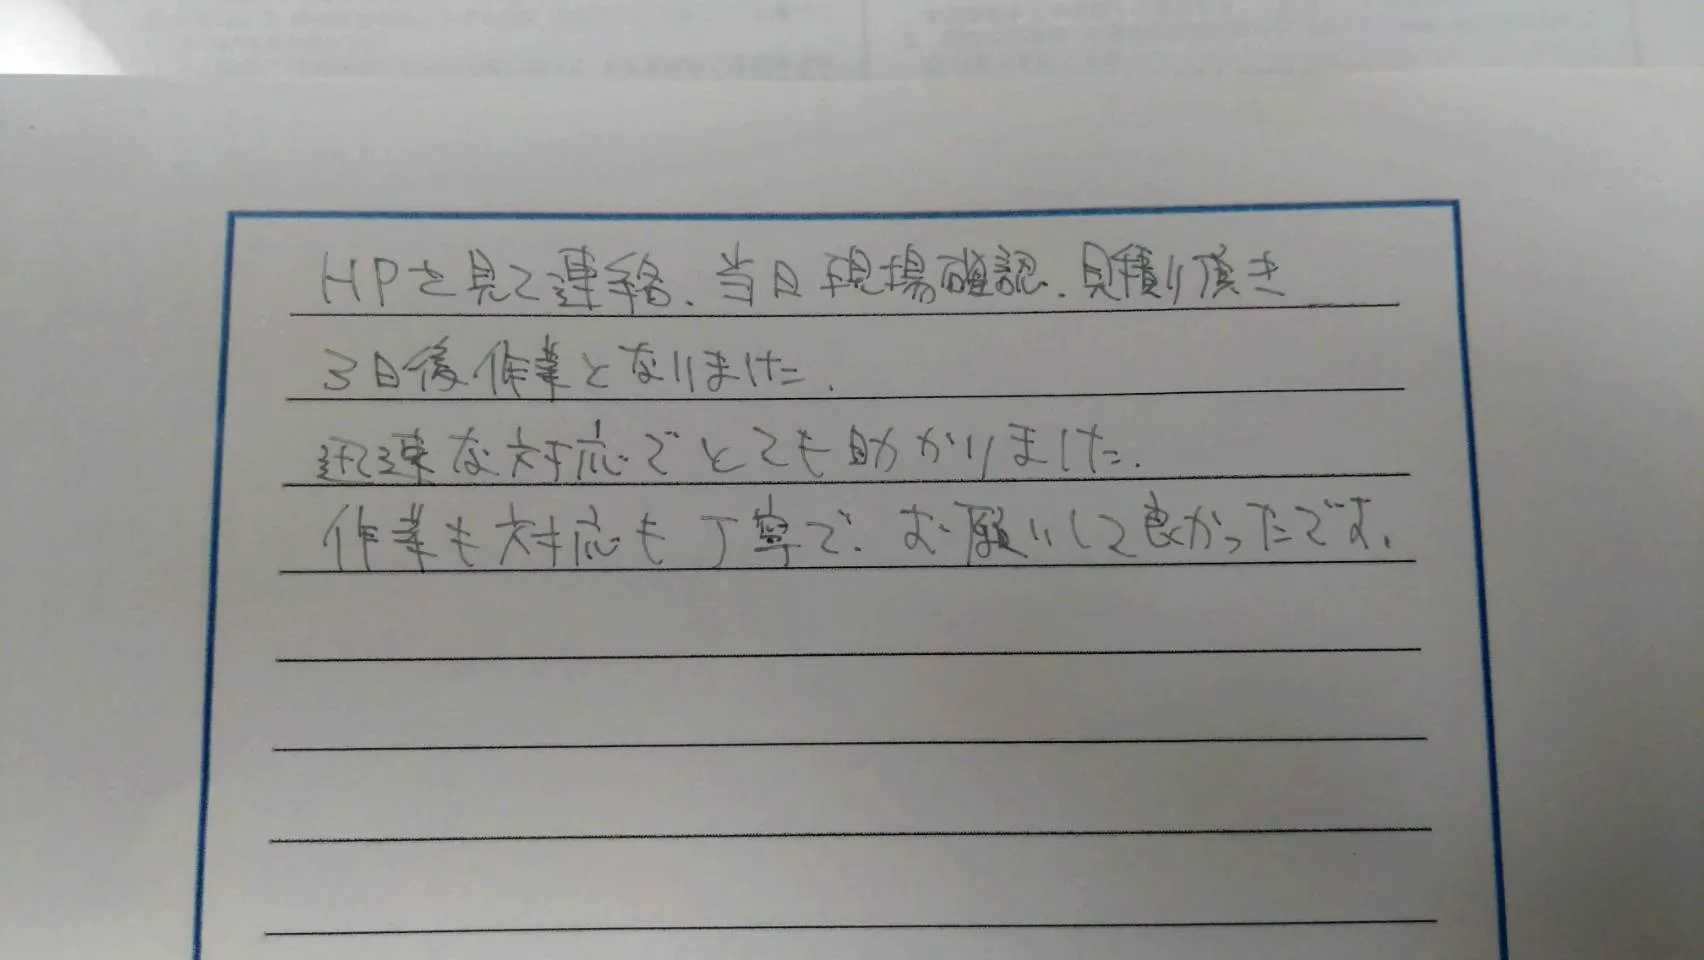 HPを見て連絡、当日現場確認、見積り頂き
3日後作業となりました。
迅速な対応でとても助かりました。
作業も対応も丁寧で、お願いして良かったです。